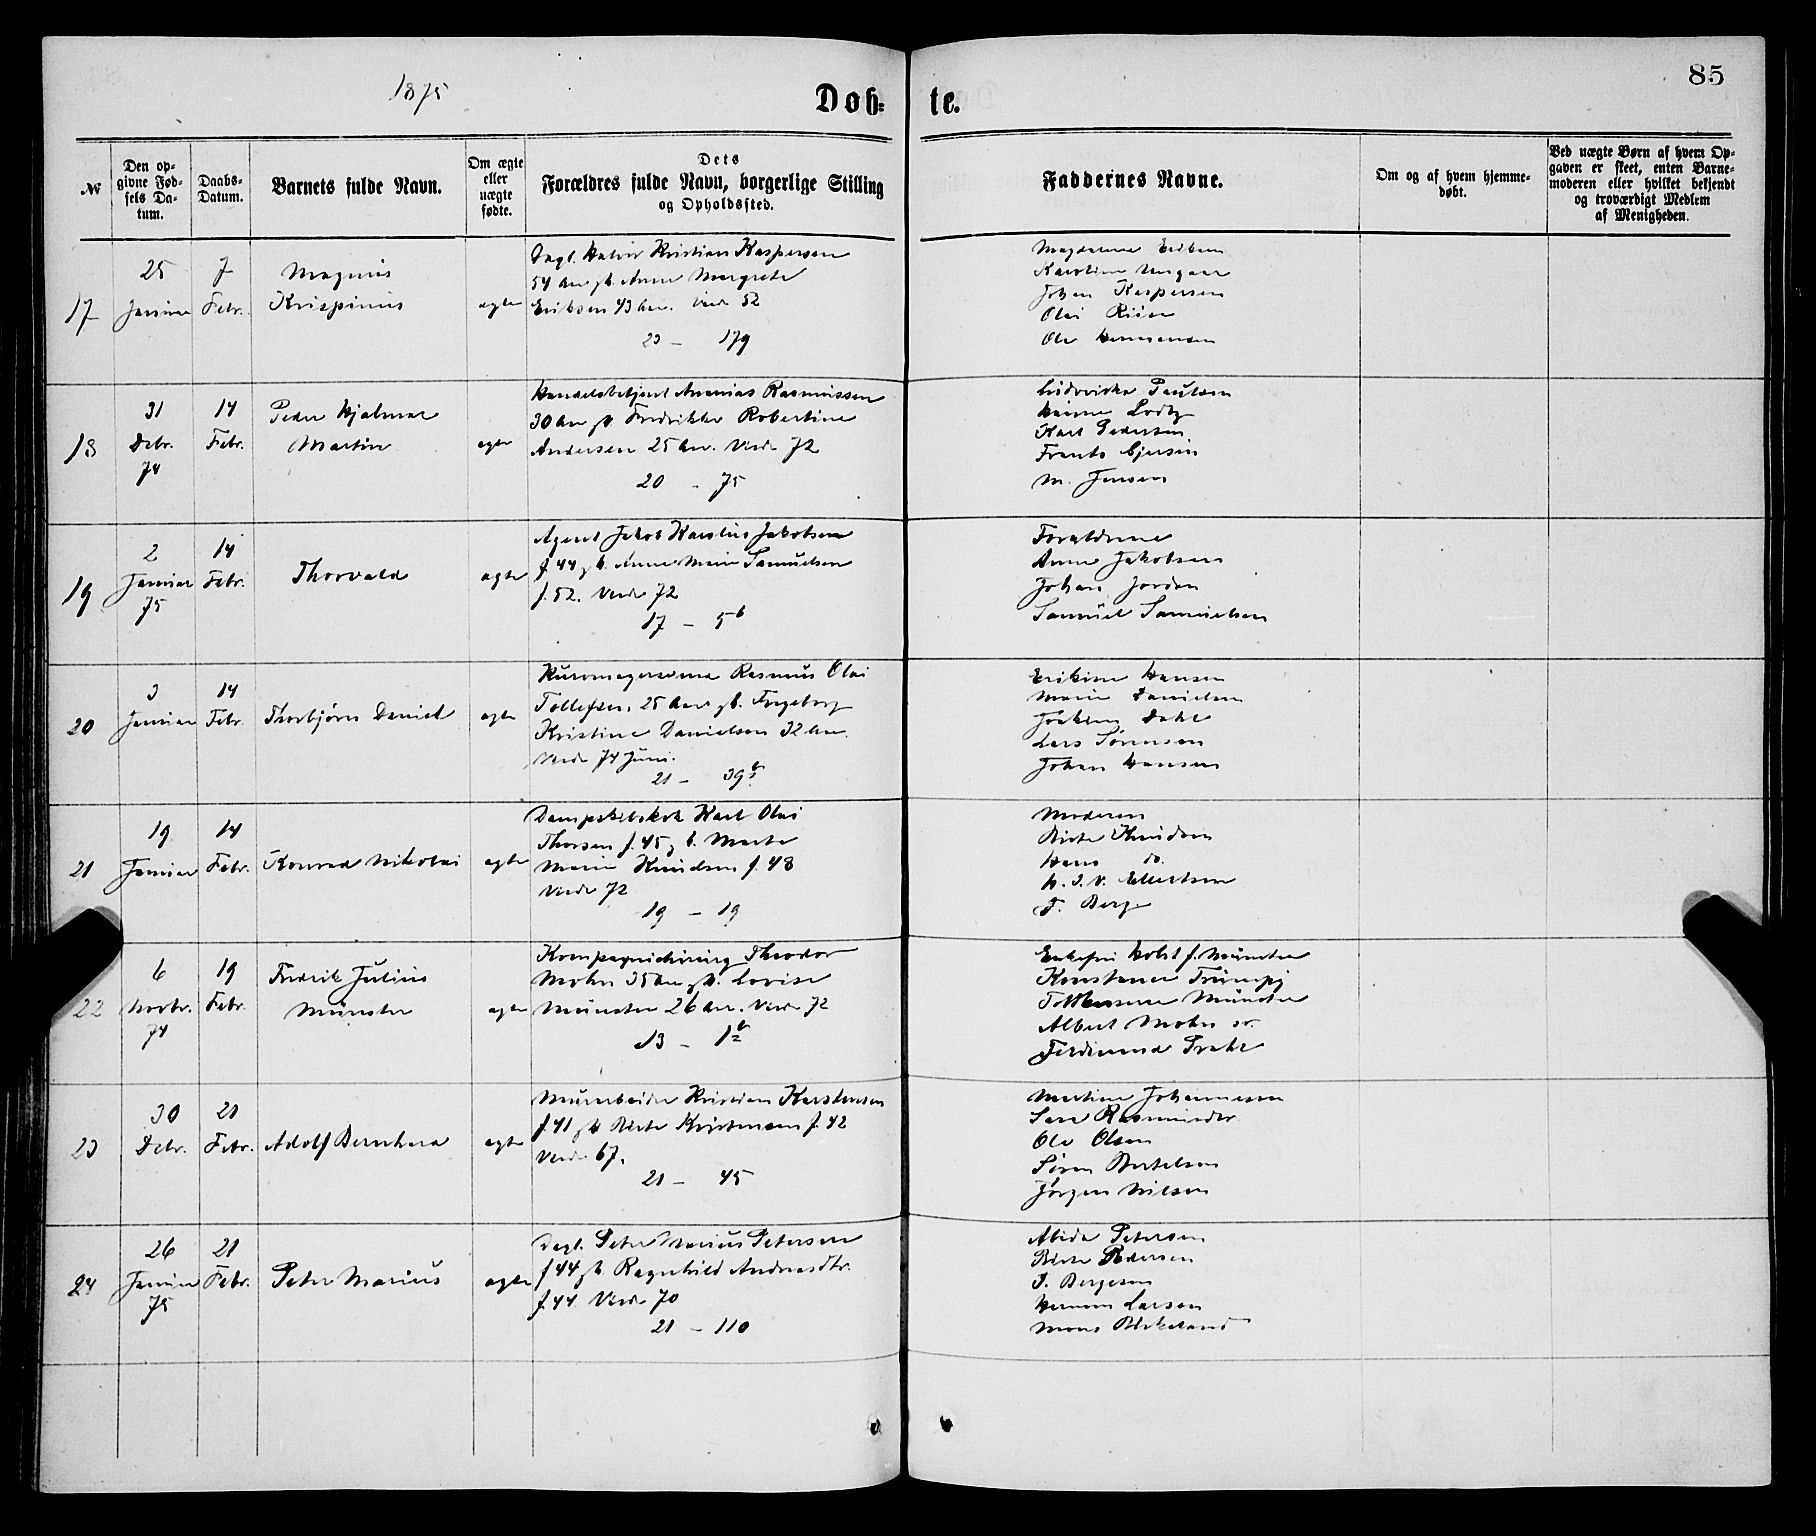 1875
Døb=
te.
85
№
Den op=
givne Fød=
sels Da=
tum.
Daabs=
Datum.
Barnets fulde Navn.
Om ægte
eller
uægte
fødte.
Dets
Forældres fulde Navn, borgerlige Stilling
og Opholdssted.
Faddernes Navne.
Om og af hvem hjemme=
døbt.
Ved uægte Børn af hvem Op=
gaven er skeet, enten Barne=
moderen eller hvilket bekjendt
og troværdigt Medlem
af Menigheden.
17
25
Januar
7
Febr.
Magnus
Krispinus
ægte
Kristian Kaspersen
54 Aar Anne Margrete
Eriksen 43 Aar. Viede 52
23 – 179
Magdalena Eriksen
Karoline
Johan Kaspersen
Olai
Ole Hermansen
18
31
Debr.
74
14
Febr.
Peder Hjalmar
Martin
ægte
Handelsbetjent Ananias Rasmussen
30 Aar Fredrikke Robertine
Andersen 25 Aar. Viede 72
20 - 75
Ludvikke Paulsen
Hanne
Karl Pedersen
Frants
M. Jensen
19
2
Januar
75
14
Febr.
Thorvald
ægte
Agent Jakob Jakobsen
f. 44 g b. Anne Marie Samuelsen
f. 52. Viede 72
17 – 5 b
Forældrene
Anne Jakobsen
Johan Jordan
Samuel Samuelsen
20
3
Januar
14
Febr
Thorbjørn Daniel
ægte
Rasmus Olai
Tollefsen, 25 Aar g b. Ingeborg
Kristine Danielsen 32 Aar.
Viede 74 Juni.
21 – 39
Hansen
Marie Danielsen
Joakim Dahl
Lars Sørensen
Johan Hansen
21
19
Januar
14
Febr.
Konrad Nikolai
ægte
Dampskibskok Karl Olai
Thorsen f. 45 g b. Marte
Marie Knudsen f. 48
Viede 72
19 – 19
Moderen
Birte Knudsen
Hans do.
H. I. V. Ellertsen
T. Berge
22
6
Novbr.
74
19
Febr.
Fredrik Julius
Münster
ægte
Kompagnichirurg Theodor
Mohn 35 Aar g b. Lovise
Münster 26 Aar. Viede 72
13 – 1
Enkefru Holst f. Münster
Konstance Trumpy
Münster
Albert Mohn sr.
Ferdinand Prahl
23
30
Debr.
21
Febr.
Adolf Bernhard
ægte
Murarbeider Kristian Karstensen
f. 41 g b Birte Kristensen f. 42
Viede 67.
21 – 45
Martine Johannesen
Sara Rasmusdtr.
Ole Olsen
Søren Bertelsen
Jørgen Nilsen
24
26
Januar
75
21
Febr.
Peter Marius
ægte
Dagl. Peter Marius Petersen
f 44 g b. Ragnhild Andreasdtr.
f. 44. Viede 70
21 – 110
Petersen
Birte Pedersen
Bergesen
Herman Larsen
Mons Birkeland